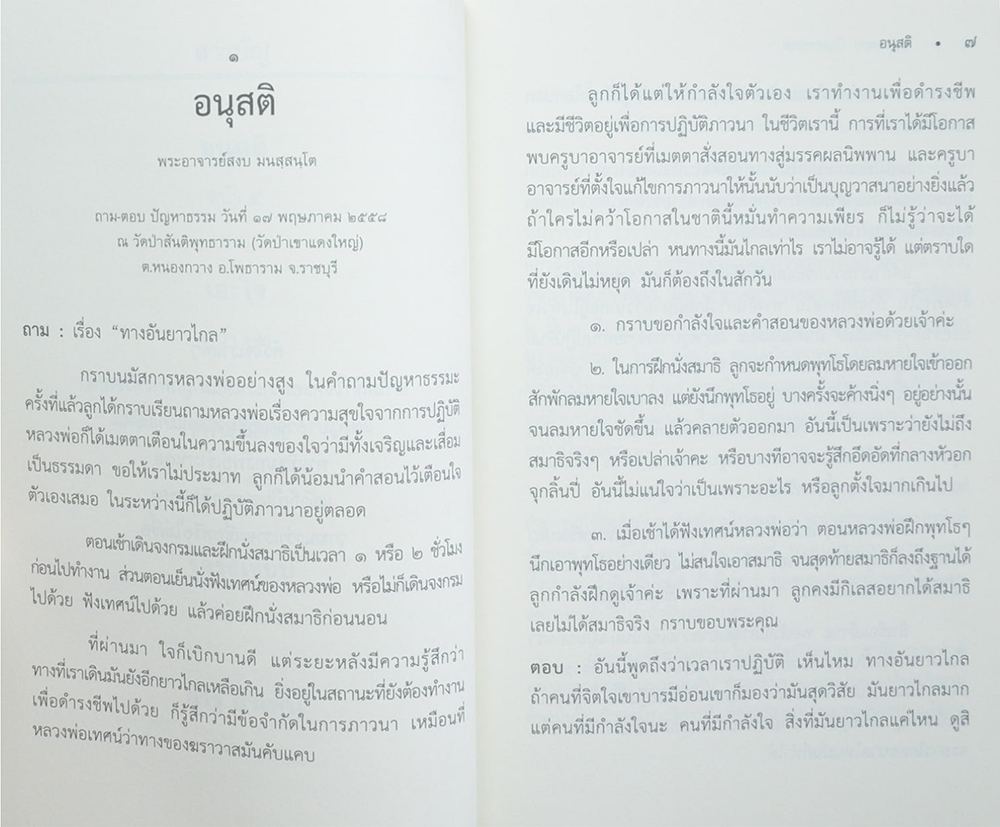 ๑
อนุสติ
พระอาจารย์สงบ มนสฺสนฺโต
ถาม-ตอบ ปัญหาธรรม วันที่ ๑๗ พฤษภาคม ๒๕๕๘
ณ วัดป่าสันติพุทธาราม (วัดป่าเขาแดงใหญ่)
ต.หนองกวาง อ.โพธาราม จ.ราชบุรี
ถาม : เรื่อง “ทางอันยาวไกล”
กราบนมัสการหลวงพ่ออย่างสูง ในคำถามปัญหาธรรมะ
ครั้งที่แล้วลูกได้กราบเรียนถามหลวงพ่อเรื่องความสุขใจจากการปฏิบัติ
หลวงพ่อก็ได้เมตตาเตือนในความขึ้นลงของใจว่ามีทั้งเจริญและเสื่อม
เป็นธรรมดา ขอให้เราไม่ประมาท ลูกก็ได้น้อมนำคำสอนไว้เตือนใจ
ตัวเองเสมอ ในระหว่างนี้ก็ได้ปฏิบัติภาวนาอยู่ตลอด
ตอนเช้าเดินจงกรมและฝึกนั่งสมาธิเป็นเวลา ๑ หรือ ๒ ชั่วโมง
ก่อนไปทำงาน ส่วนตอนเย็นนั่งฟังเทศน์ของหลวงพ่อ หรือไม่ก็เดินจงกรม
ไปด้วย ฟังเทศน์ไปด้วย แล้วค่อยฝึกนั่งสมาธิก่อนนอน
ที่ผ่านมา ใจก็เบิกบานดี แต่ระยะหลังมีความรู้สึกว่า
ทางที่เราเดินมันยังอีกยาวไกลเหลือเกิน ยิ่งอยู่ในสถานะที่ยังต้องทำงาน
เพื่อดำรงชีพไปด้วย ก็รู้สึกว่ามีข้อจำกัดในการภาวนา เหมือนที่
หลวงพ่อเทศน์ว่าทางของฆราวาสมันคับแคบ
อนุสติ • ๗
ลูกก็ได้แต่ให้กำลังใจตัวเอง เราทำงานเพื่อดำรงชีพ
และมีชีวิตอยู่เพื่อการปฏิบัติภาวนา ในชีวิตเรานี้ การที่เราได้มีโอกาส
พบครูบาอาจารย์ที่เมตตาสั่งสอนทางสู่มรรคผลนิพพาน และครูบา
อาจารย์ที่ตั้งใจแก้ไขการภาวนาให้นั้นนับว่าเป็นบุญวาสนาอย่างยิ่งแล้ว
ถ้าใครไม่คว้าโอกาสในชาตินี้หมั่นทำความเพียร ก็ไม่รู้ว่าจะได้
มีโอกาสอีกหรือเปล่า หนทางนี้มันไกลเท่าไร เราไม่อาจรู้ได้ แต่ตราบใด
ที่ยังเดินไม่หยุด มันก็ต้องถึงในสักวัน
๑. กราบขอกำลังใจและคำสอนของหลวงพ่อด้วยเจ้าค่ะ
๒. ในการฝึกนั่งสมาธิ ลูกจะกำหนดพุทโธโดยลมหายใจเข้าออก
สักพักลมหายใจเบาลง แต่ยังนึกพุทโธอยู่ บางครั้งจะค้างนิ่งๆ อยู่อย่างนั้น
จนลมหายใจชัดขึ้น แล้วคลายตัวออกมา อันนี้เป็นเพราะว่ายังไม่ถึง
สมาธิจริงๆ หรือเปล่าเจ้าคะ หรือบางทีอาจจะรู้สึกอึดอัดที่กลางหัวอก
จุกลิ้นปี่ อันนี้ไม่แน่ใจว่าเป็นเพราะอะไร หรือลูกตั้งใจมากเกินไป
๓. เมื่อเช้าได้ฟังเทศน์หลวงพ่อว่า ตอนหลวงพ่อฝึกพุทโธๆ
นึกเอาพุทโธอย่างเดียว ไม่สนใจเอาสมาธิ จนสุดท้ายสมาธิก็ลงถึงฐานได้
ลูกกำลังฝึกดูเจ้าค่ะ เพราะที่ผ่านมา ลูกคงมีกิเลสอยากได้สมาธิ
เลยไม่ได้สมาธิจริง กราบขอบพระคุณ
ตอบ : อันนี้พูดถึงว่าเวลาเราปฏิบัติ เห็นไหม ทางอันยาวไกล
ถ้าคนที่จิตใจเขาบารมีอ่อนเขาก็มองว่ามันสุดวิสัย มันยาวไกลมาก
แต่คนที่มีกำลังใจนะ คนที่มีกำลังใจ สิ่งที่มันยาวไกลแค่ไหน ดูสิ